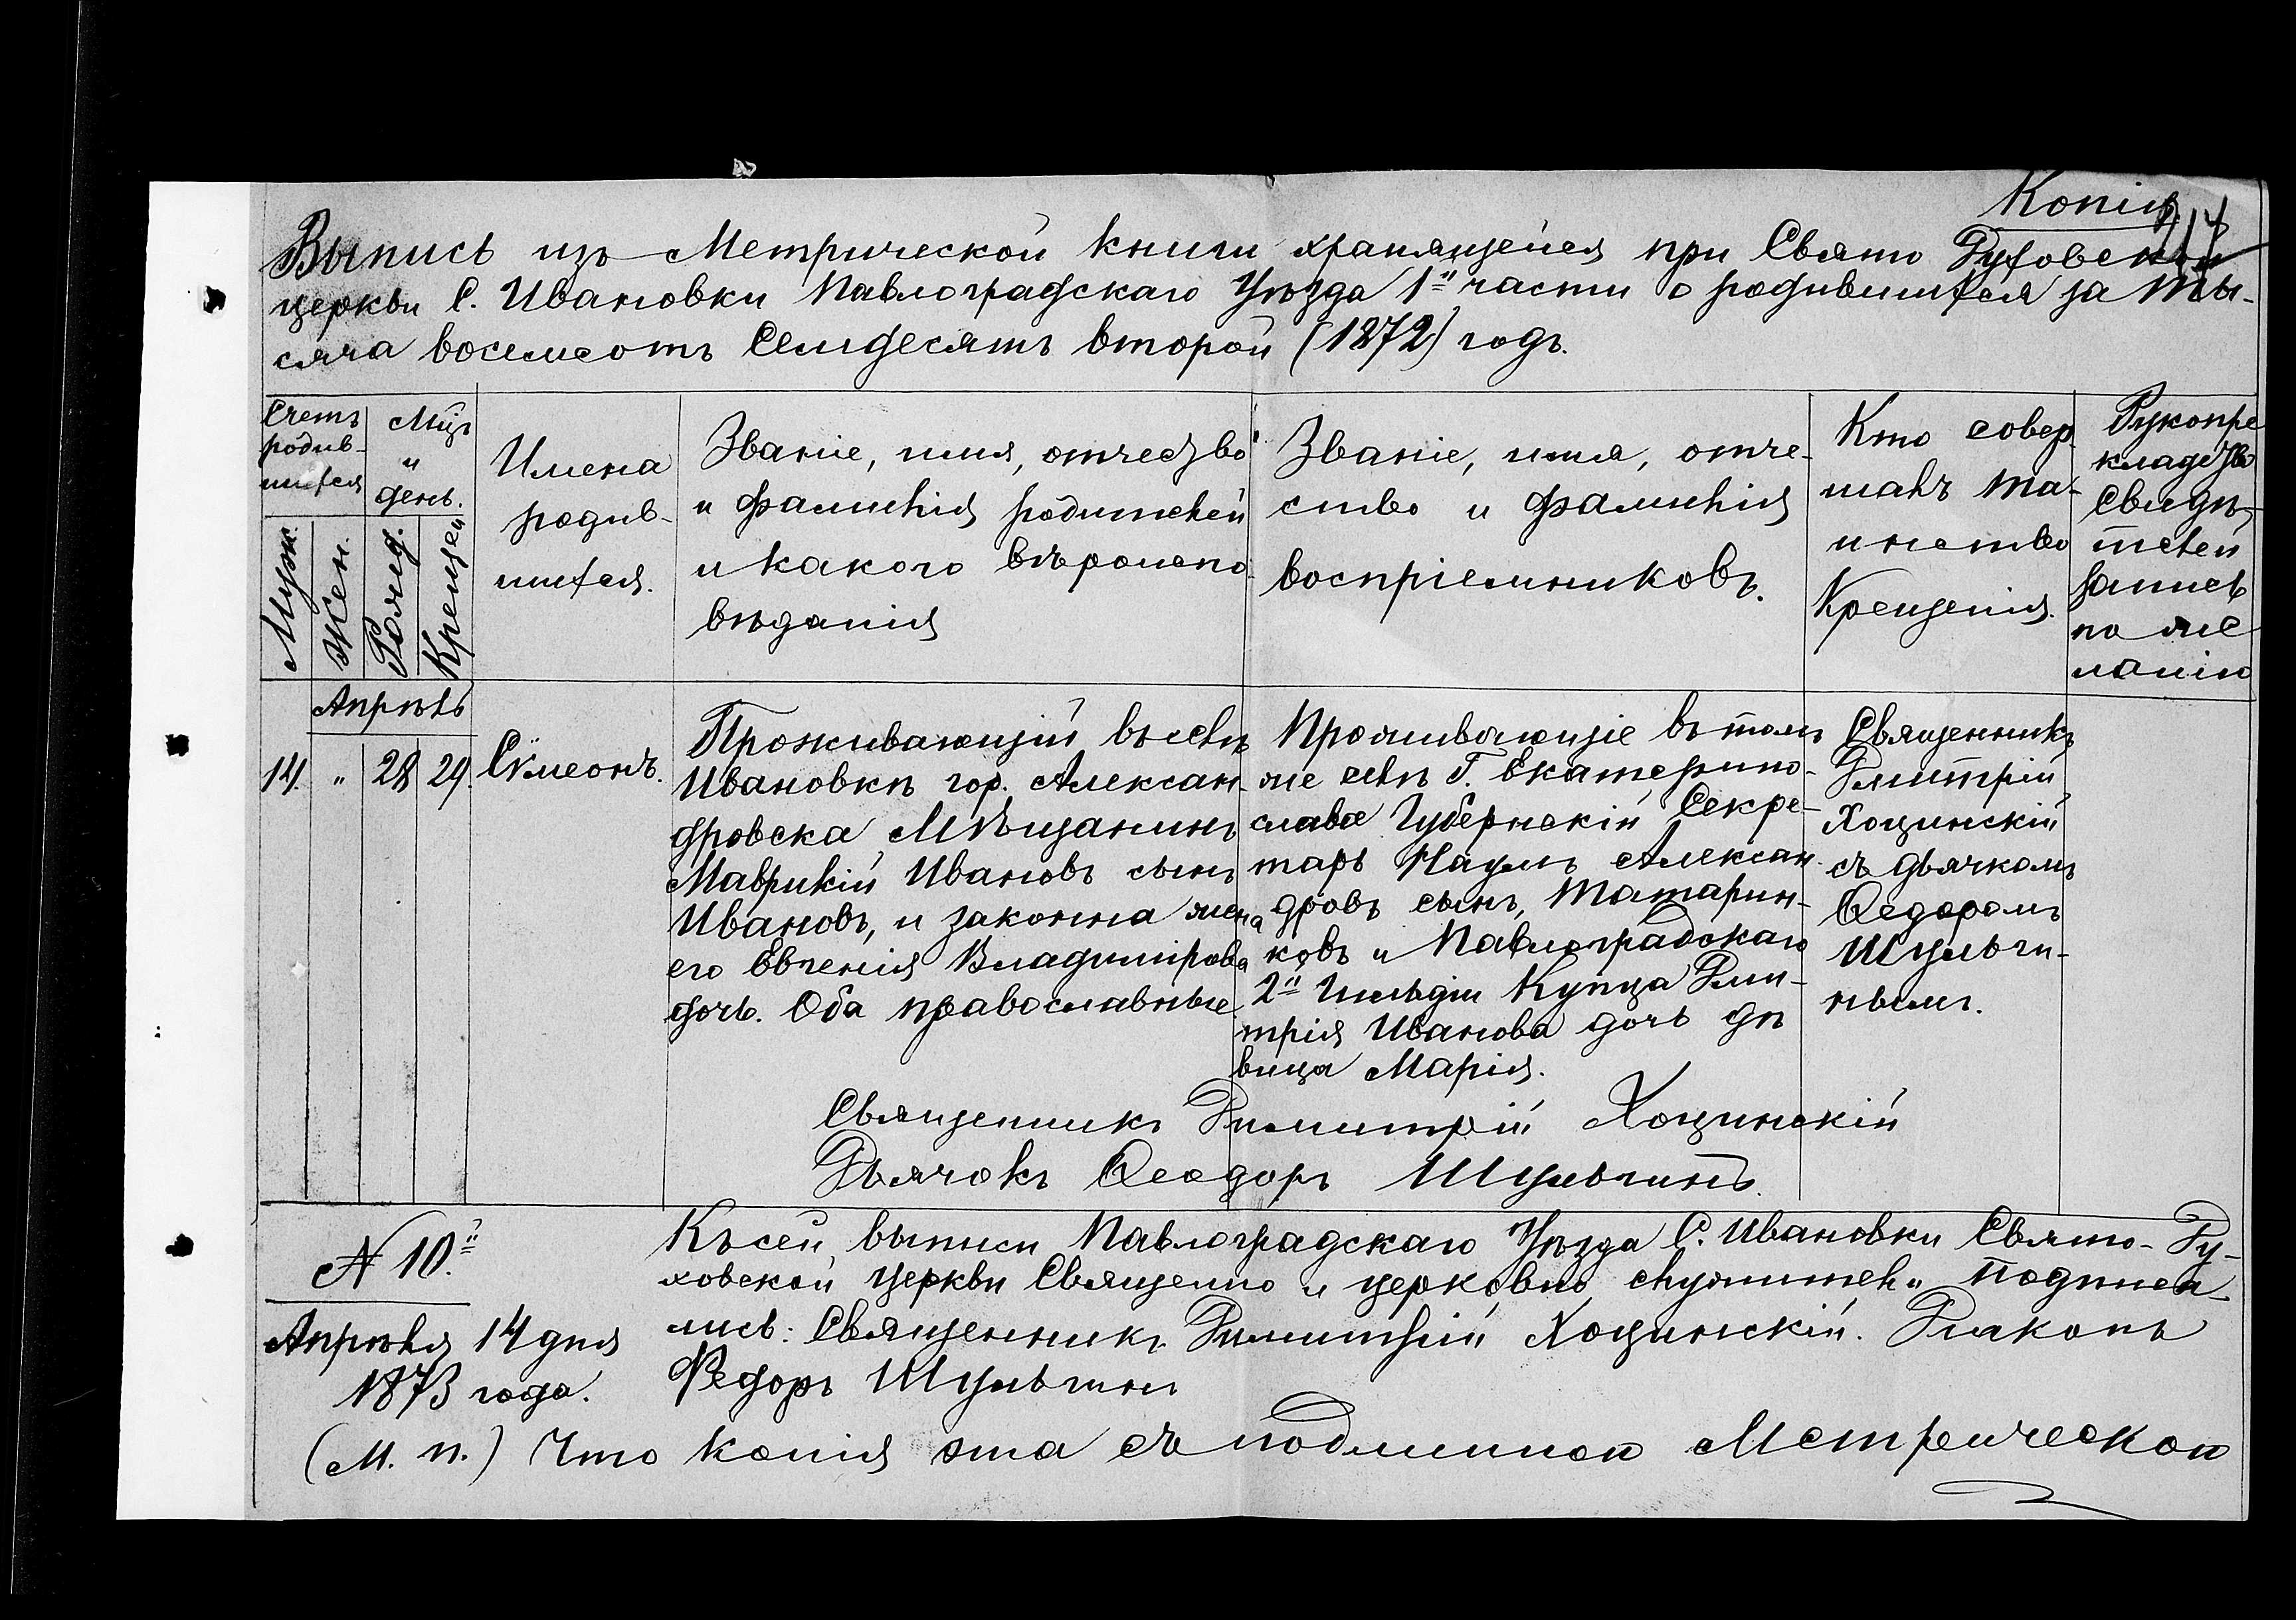 Копія
Выпись изъ Метрической книги хранящейся при Свято Духовской
церкви С. Ивановки Павлоградскаго Уѣзда 1й части о родившихся за ты-
сяча восемсотъ Семдесятъ второй (1872) годъ.
Счетъ родив- шихся
Муж.
Жен.
Мцъ и день.
Рожд.
Крещен
Имена
родив-
шихся.
Званіе, имя, отчество
и фамилія родителей
и какого вѣроиспо-
вѣданія
Званіе, имя, отче-
ство и фамилія
воспріемниковъ.
Кто совер-
шалъ та-
инство
Крещенія.
Рукопре
кладство
Свидѣ-
телей
записѣ
по же
ланію
Апрѣль
14. " 28 29. Сѵмеонъ.
Проживающій въ селѣ
Ивановкѣ гор. Алексан-
дровска Мѣщанинъ
Маврикій Ивановъ сынъ
Ивановъ, и законна жена
его Евгенія Владимірова
дочь. Оба православные
Проживающіе въ томъ
же селѣ Г. Екатерино-
слава Губернскій Секре-
тарь Наумъ Алексан-
дровъ сынъ, Татарин-
ковъ и Павлоградскаго
2й Гильдіи Купца Дми-
трія Иванова дочь дѣ
вица Марія.
Священникъ
Димитрій
Хощинскій
съ дьячкомъ
Ѳедоромъ
Шульги-
нымъ.
Священникъ Димитрій Хощинскій
Дьячокъ Ѳеодоръ Шульгинъ.
N 10й
Апрѣля 14 дня
1873 года.
Къ сей выписи Павлоградскаго Уѣзда С. Ивановки Свято-Ду-
ховской церкви Священно и церковно служители подписа-
лись: Священникъ Димитрій Хощинскій. Діаконъ
Федоръ Шульгинъ
(М. п.) Что копія эта съ подлинной Метрической